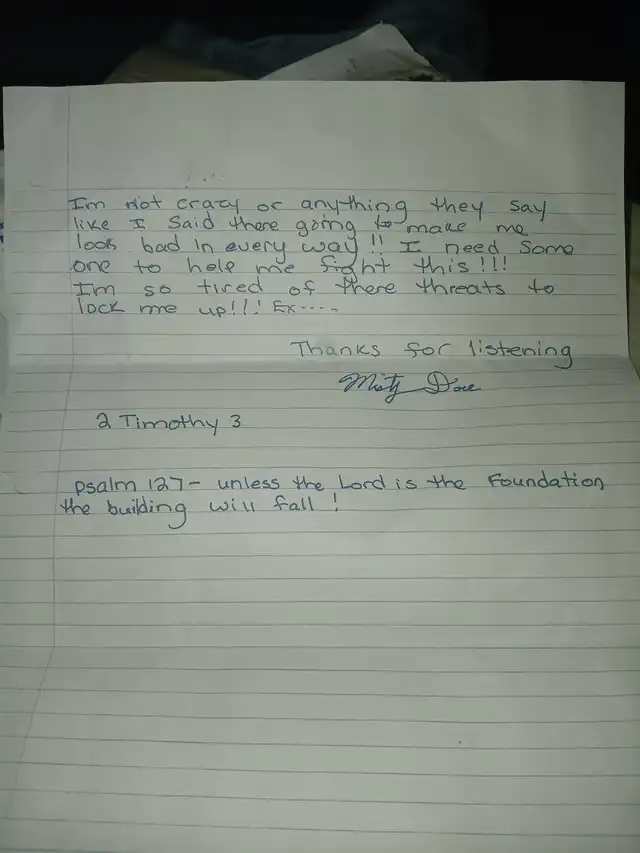 I'm not crazy or anything they say
like I said there going to make me
look bad in every way!! I need some
one to help me fight this!!!
I'm so tired of there threats to
lock me up!!! Ex....
Thanks for listening
Misty Doe
2 Timothy 3
psalm 127- unless the Lord is the Foundation
the building will fall!